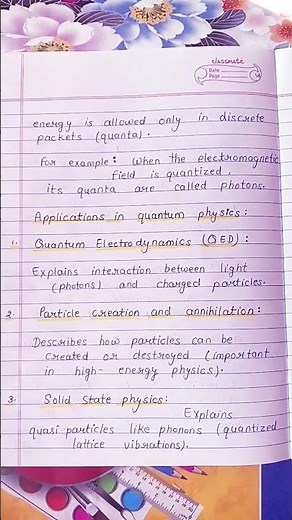 classmate
Date
Page
energy is allowed only in discrete
packets (quanta).
For example: When the electromagnetic
field is quantized,
its quanta are called photons.
Applications in quantum physics:
1. Quantum Electrodynamics (QED):
Explains interaction between light
(photons) and charged particles.
2. Particle creation and annihilation:
Describes how particles can be
created or destroyed (important
in high-energy physics).
3. Solid State physics:
Explains
quasi-particles like phonons (quantized
lattice vibrations).